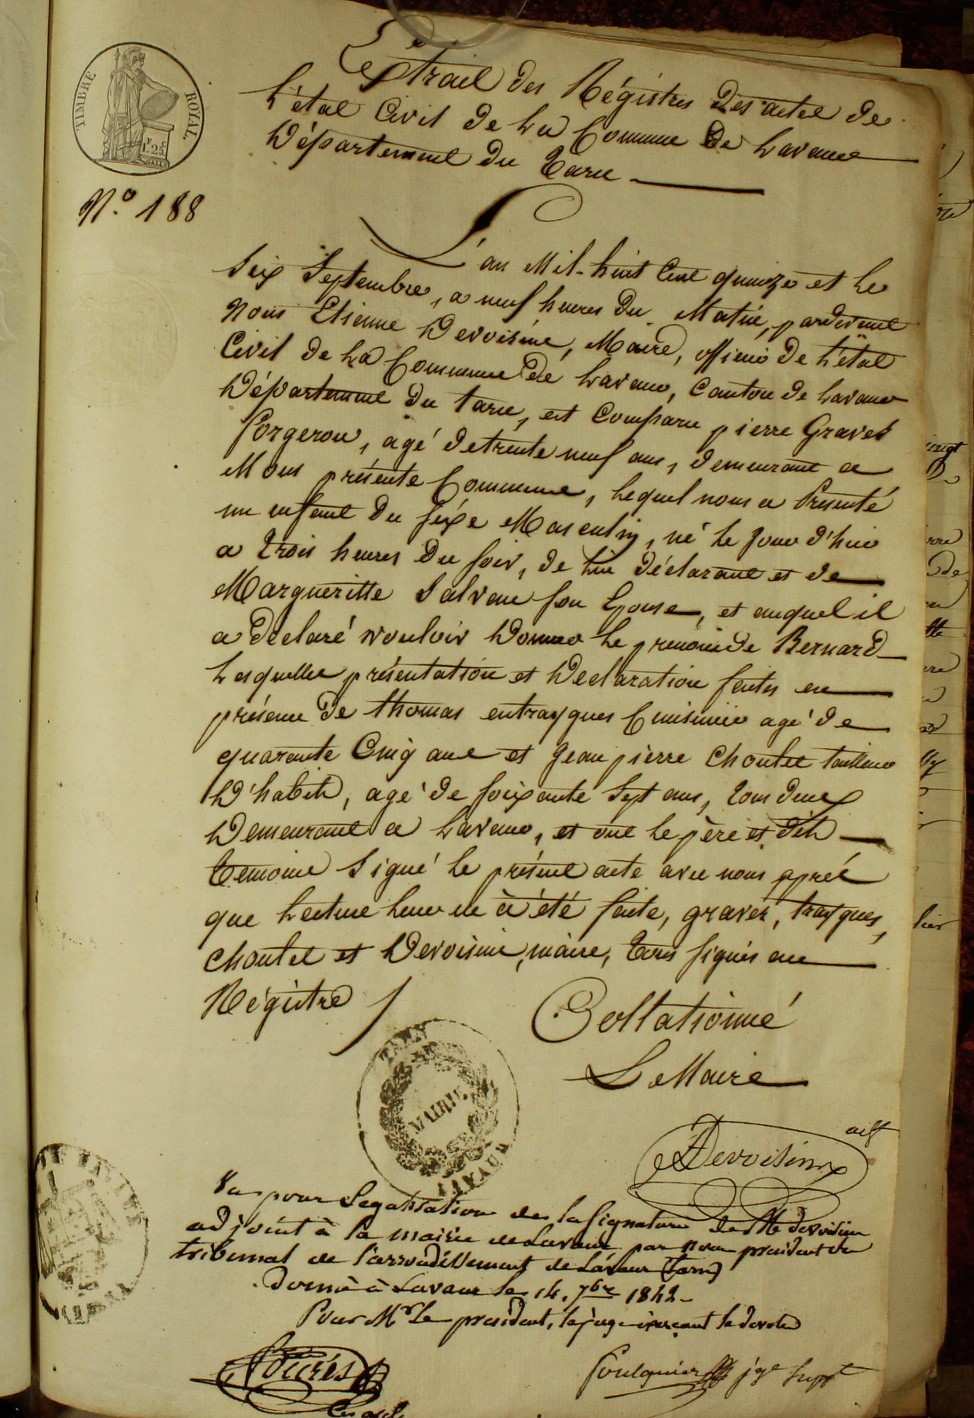 TIMBRE ROYAL
1f 25
N.o 188
Extrait des Régistres Des actes de
L'état Civil de La Commune De Lavaur
Département du Tarn
L'an Mil-huit Cent quinze et le
Six Septembre, a neuf heures du Matin, pardevant
Nous Etienne Devoisins, Maire, officier de L'état
Civil de La Commune De Lavaur, Canton de Lavaur
Département du tarn, est Comparu pierre Graves
forgeron, agé detrente neuf ans, demeurant a
présente Commune, Lequel nous a Présenté
un enfant du séxe Masculin, né le Jour d'hier
a Trois heures Du soir, de Lui déclarant et de
Margueritte Salvan son Epouse, et auquel il
a Déclaré vouloir Donner Le prénom de Bernard
Lesquelles présentation et Déclaration faites en
présence De thomas entrayques Cuisinier agé de
quarante Cinq ans et Jean pierre Choulet tailleur
D'habits, agé de soixante Sept ans, tous deux
Demeurant a Lavaur, et ont le père et dits
temoins Signé le présent acte avec nous aprés
que Lecture Leur en à été faite, graves, trayques,
Choulet et Devoisins, maire, tous signés au
Régistre
Collationné
Le Maire
TARN
MAIRIE
LAVAUR
adjt
Devoisins
Vu pour Legalisation de la Signature de Mr devoisins
adjoint à la mairie de Lavaur par nous président du
tribunal de l'arrondissement de Lavaur (tarn)
donné à Lavaur le 14. 7bre 1842
Pour Mr Le président, le juge exerçant le devolu
Foulquier jge Suppt